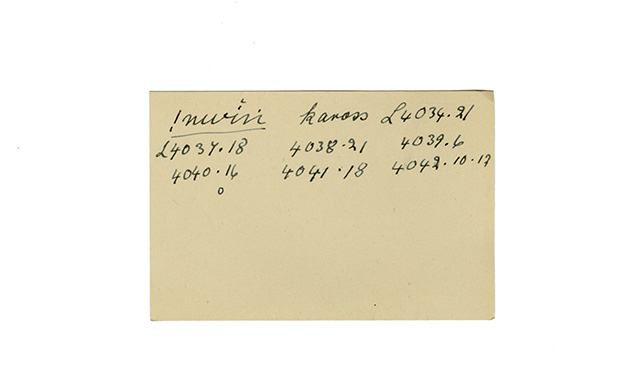 !nwĭri kaross L4034.21
L4037.18 4038.21 4039.6
4040.16 4041.18 4042.10.17
0